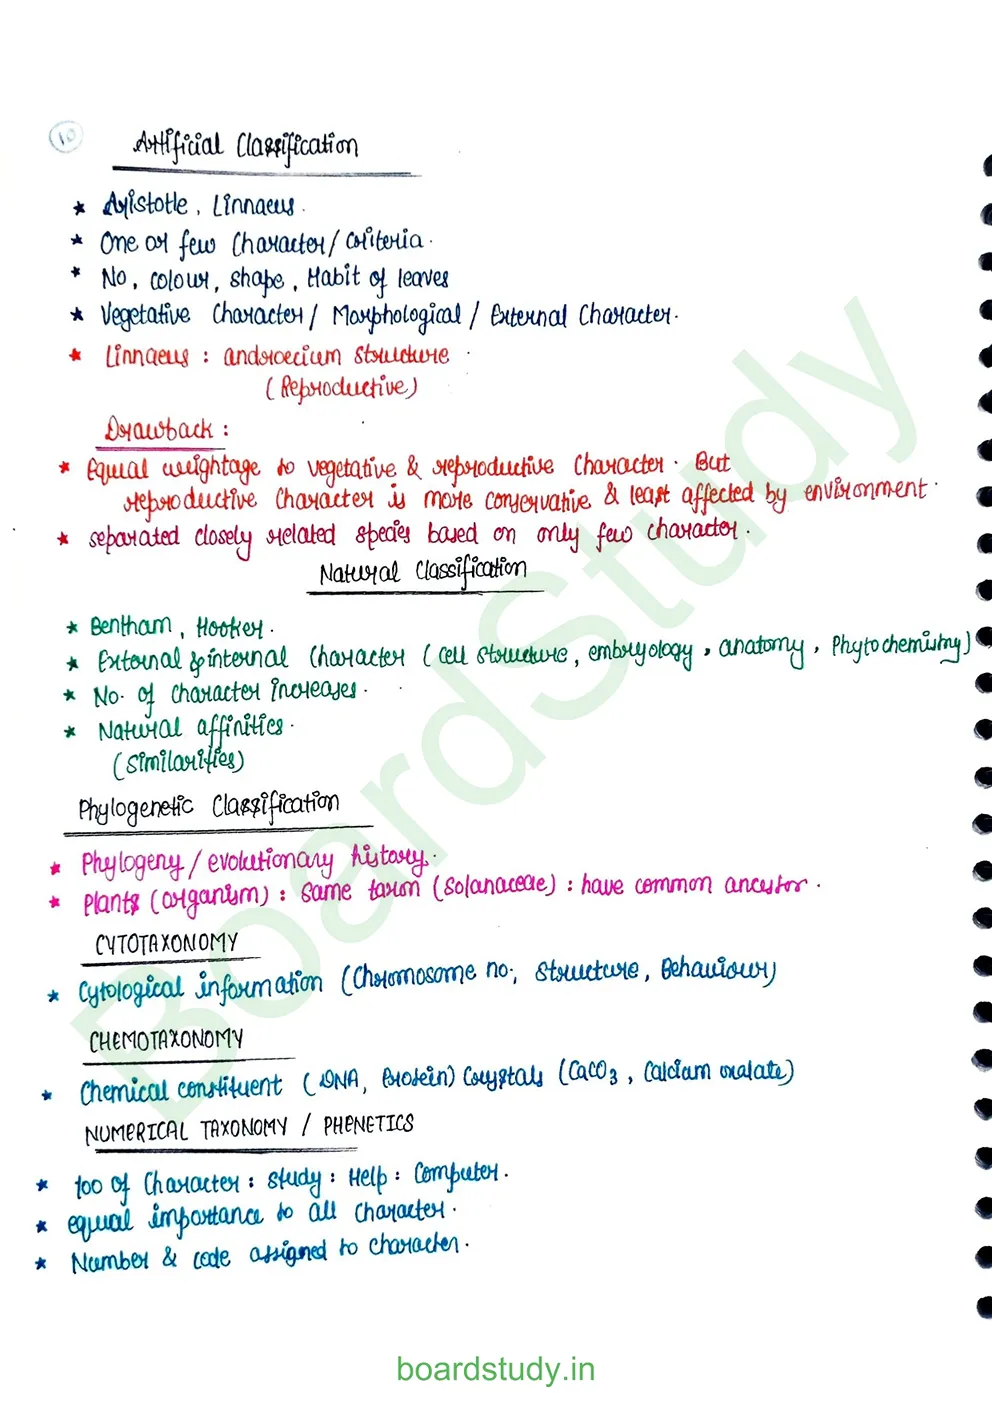 10
Artificial Classification
* Aristotle, Linnaeus.
* One or few Character/criteria.
* No, colour, shape, Habit of leaves
* Vegetative Character / Morphological / External Character.
* Linnaeus : androecium structure
(Reproductive)
Drawback :
* Equal weightage to vegetative & reproductive Character. But
reproductive Character is more conservative & least affected by environment.
* separated closely related species based on only few character.
Natural Classification
* Bentham, Hooker.
* External & internal Character (cell structure, embryology, anatomy, Phytochemistry)
* No. of character increases.
* Natural affinities.
(Similarities)
Phylogenetic Classification
* Phylogeny / evolutionary history.
* Plants (organism) : same taxon (Solanaceae) : have common ancestor.
CYTOTAXONOMY
* Cytological information (Chromosome no., structure, Behaviour)
CHEMOTAXONOMY
* Chemical constituent (DNA, Protein) Crystals (CaCO3, Calcium oxalate)
NUMERICAL TAXONOMY / PHENETICS
* 100 of Character : study : Help : Computer.
* equal importance to all character.
* Number & code assigned to character.
BoardStudy
boardstudy.in